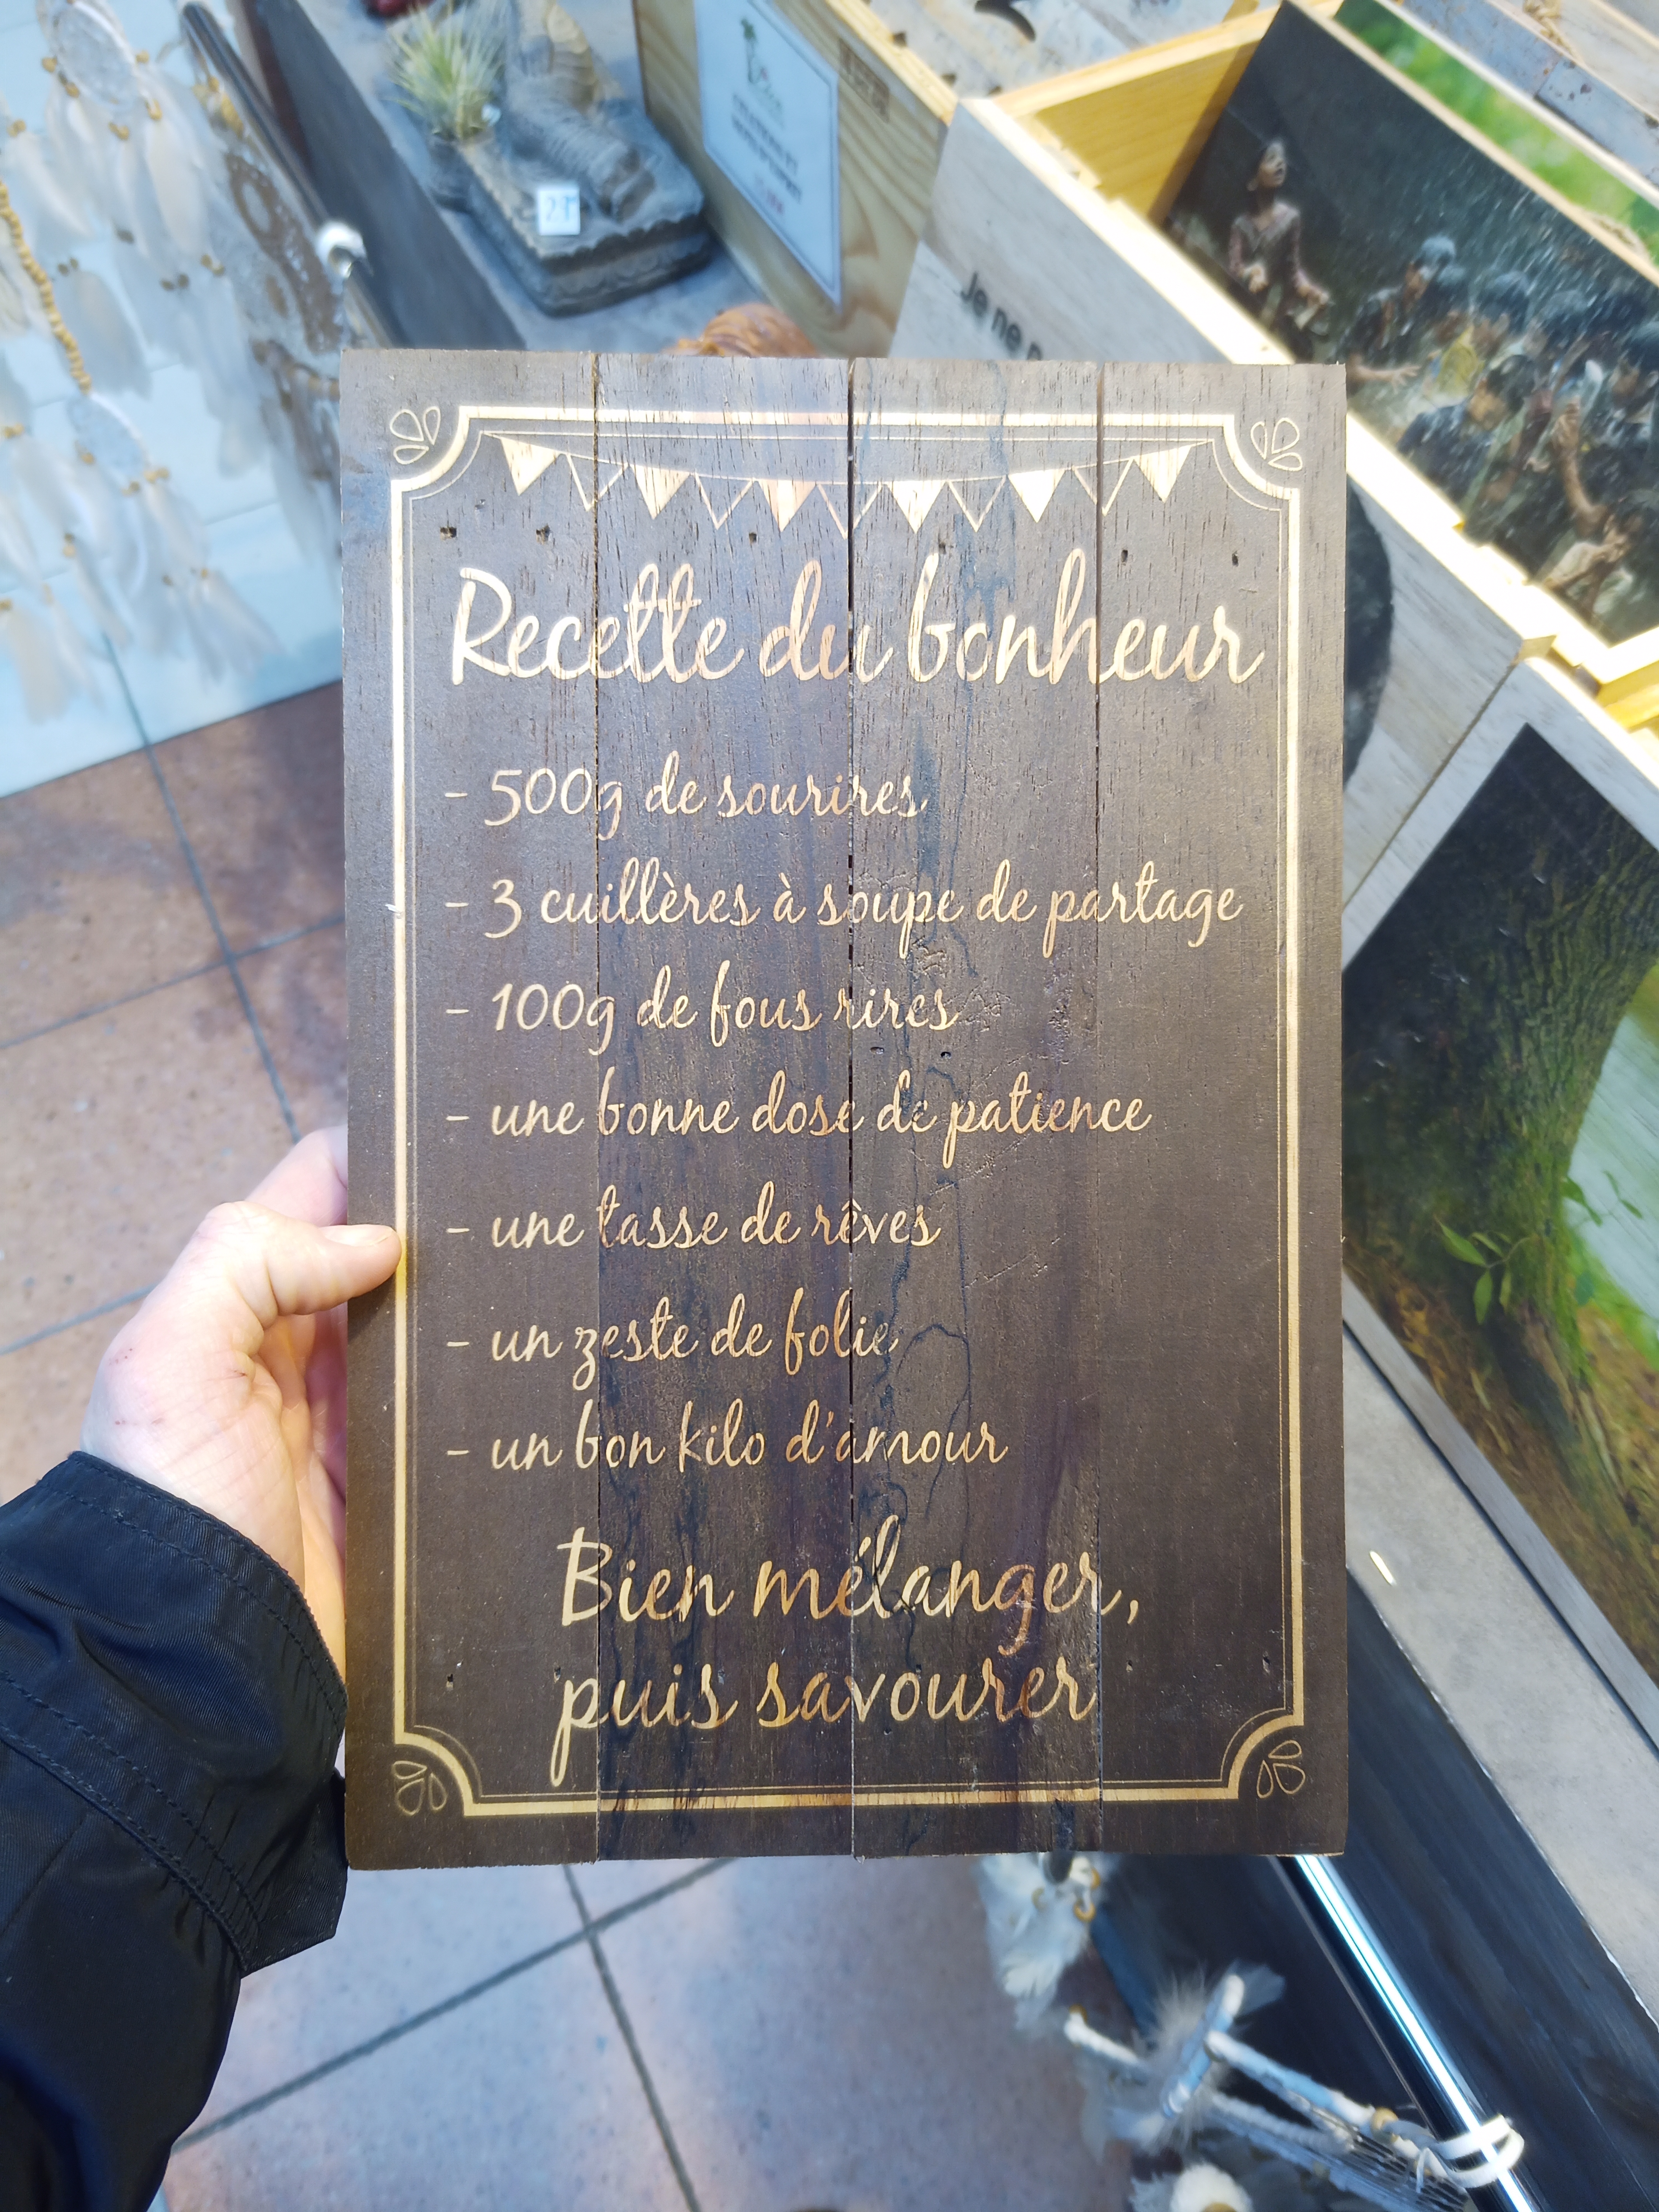 Je ne
Recette du bonheur
- 500g de sourires
- 3 cuillères à soupe de partage
- 100g de fous rires
- une bonne dose de patience
- une tasse de rêves
- un zeste de folie
- un bon kilo d'amour
Bien mélanger,
puis savourer